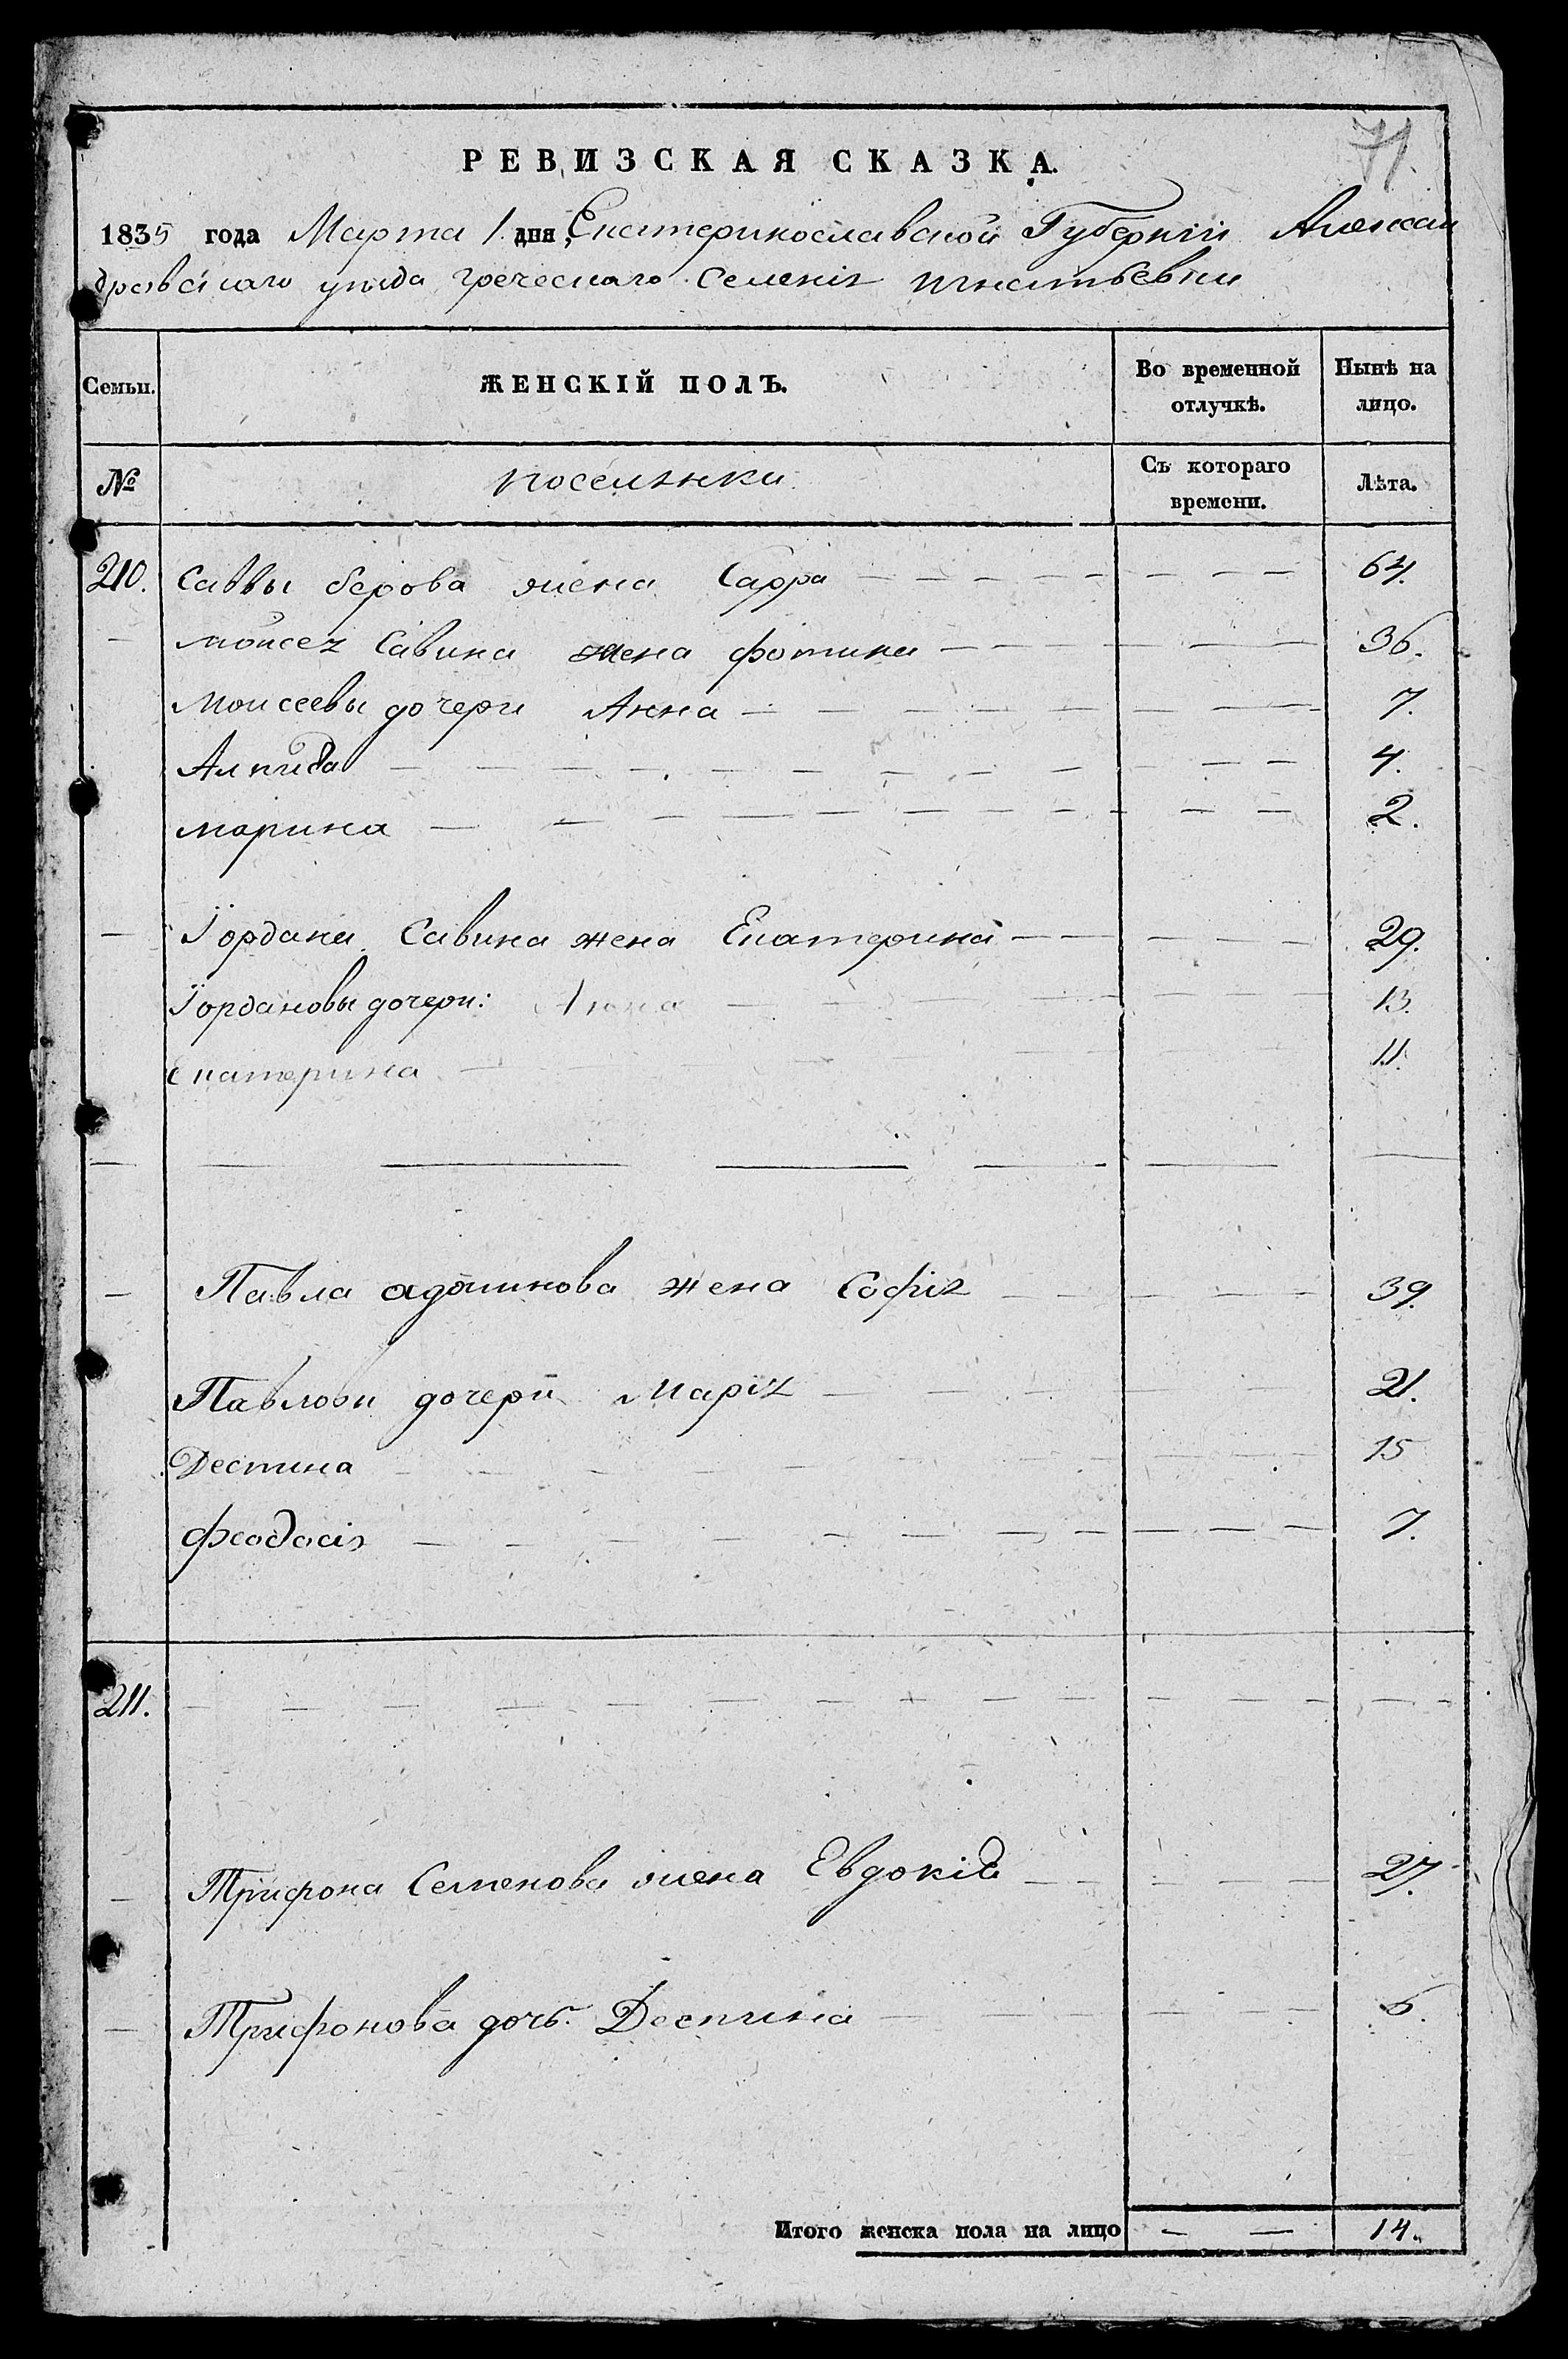 71.
РЕВИЗСКАЯ СКАЗКА.
1835 года Марта 1 дня, Екатеринославской Губернiи Алексан
дровскаго уѣзда греческаго Селенiя игнатьевки
Семьи. ЖЕНСКIЙ ПОЛЪ. Во временной отлучкѣ. Нынѣ на лицо.
№ поселянки Съ котораго времени. Лѣта.
210. Саввы берова жена Сарра — — — 64.
— моисея Савина жена фотина — — — 36.
Моисеевы дочери Анна — — — 7.
Алпида — — — 4.
марина — — — 2.
— Iордана Савина жена Екатерина — — — 29.
Iордановы дочери: Анна — — — 13.
Екатерина — — — 11.
— — — — — — —
— Павла жена Софiя — — — 39.
Павлови дочери Марiя — — — 21.
Деспина — — — 15
феодосiя — — — 7.
211. — — — — — —
— Трифона Семенова жена Евдокiя — — — 27.
— Трифонова дочь. Деспина — — — 6.
Итого женска пола на лицо — — 14.